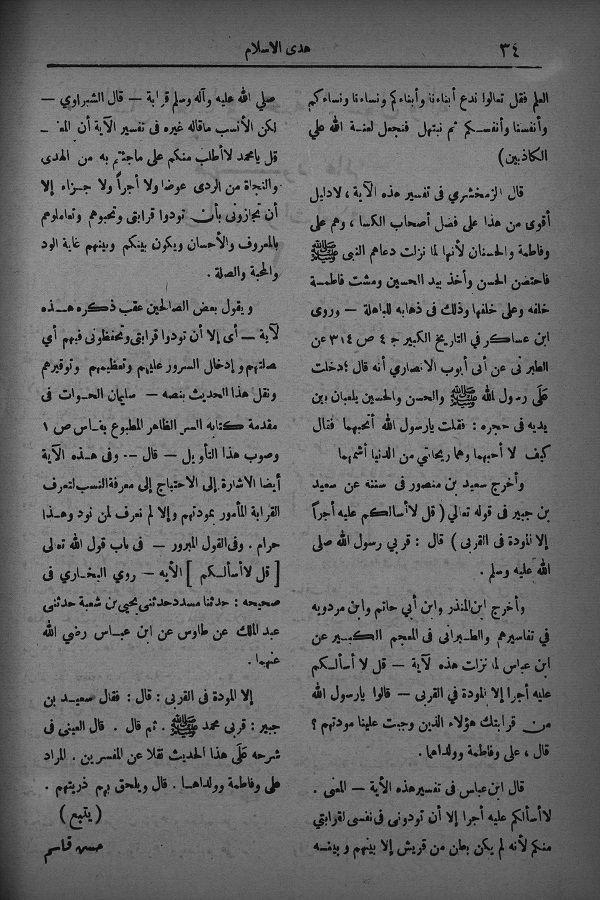 ٣٤
هدى الاسلام
العلم فقل تعالوا ندع أبناءنا وأبناءكم ونساءنا ونساءكم
وأنفسنا وأنفسكم ثم نبتهل فنجعل لعنة الله على
الكاذبين)
قال الزمخشري في تفسير هذه الآية ، لا دليل
أقوى من هذا على فضل أصحاب الكسا ، وهم على
وفاطمة والحسنان لأنها لما نزلت دعاهم النبي ﷺ
فاحتضن الحسن وأخذ بيد الحسين ومشت فاطمة
خلفه وعلى خلفها وذلك فى ذهابه للمباهلة — وروى
ابن عساكر في التاريخ الكبير ج ٤ ص ٣١٤ عن
الطبرانى عن أبى أيوب الانصاري أنه قال : دخلت
على رسول الله ﷺ والحسن والحسين يلعبان بين
يديه فى حجره : فقلت يارسول الله أتحبهما فقال
كيف لا أحبهما وهما ريحانتي من الدنيا أشمهما
وأخرج سعيد بن منصور فى سننه عن سعيد
بن جبير فى قوله تعالى ( قل لا أسألكم عليه أجراً
إلا المودة فى القربى ) قال : قربي رسول الله صلى
الله عليه وسلم .
وأخرج ابن المنذر وابن أبي حاتم وابن مردويه
في تفاسيرهم والطبرانى فى المعجم الكبير عن
ابن عباس لما نزلت هذه الآية — قل لا أسألكم
عليه أجرا إلا المودة في القربى — قالوا يارسول الله
من قرابتك هؤلاء الذين وجبت علينا مودتهم ؟
قال ، على وفاطمة وولداهما .
قال ابن عباس فى تفسير هذه الأية — المعنى .
لا أسألكم عليه أجرا إلا أن تودونى فى نفسى لقرابتي
منكم لأنه لم يكن بطن من قريش إلا بينهم و بينه
صلي الله عليه وآله وسلم قرابة — قال الشبراوي —
لكن الأنسب ماقاله غيره فى تفسير الآية أن المعنى —
قل يا محمد لا أطلب منكم على ماجئتكم به من الهدى
والنجاة من الردى عوضا ولا أجراً ولا جزاء إلا
أن تجازونى بأن تودوا قرابتى وتحبوهم وتعاملوهم
بالمعروف والأحسان ويكون بينكم وبينهم غاية الود
والمحبة والصلة .
و يقول بعض الصالحين عقب ذكره هذه
الآية — أى إلا أن تودوا قرابتى وتحفظونى فيهم أي
صلتهم و إدخال السرور عليهم وتعظيمهم وتوقيرهم
ونقل هذا الحديث بنصه — سليمان الحوات فى
مقدمة كتابه السر الظاهر المطبوع بفاس ص ١
وصوب هذا التأويل — قال — وفى هذه الآية
أيضا الاشارة إلى الاحتياج إلى معرفة النسب لتعرف
القرابة المأمور بمودتهم وإلا لم نعرف لمن نود وهذا
حرام . وفى القول المبرور — فى باب قول الله تعالى
[ قل لا أسألكم ] الأيه — روي البخاري فى
صحيحه : حدثنا مسدد حدثنى يحيى بن شعبة حدثنى
عبد الملك عن طاوس عن ابن عباس رضي الله
عنهما .
إلا المودة فى القربى : قال : فقال سعيد بن
جبير : قربى محمد ﷺ . ثم قال . قال العينى فى
شرحه على هذا الحديث نقلا عن المفسرين . المراد
على وفاطمة وولداهما . قال ويلحق بهم ذريتهم .
( يتبع )
حسن قاسم